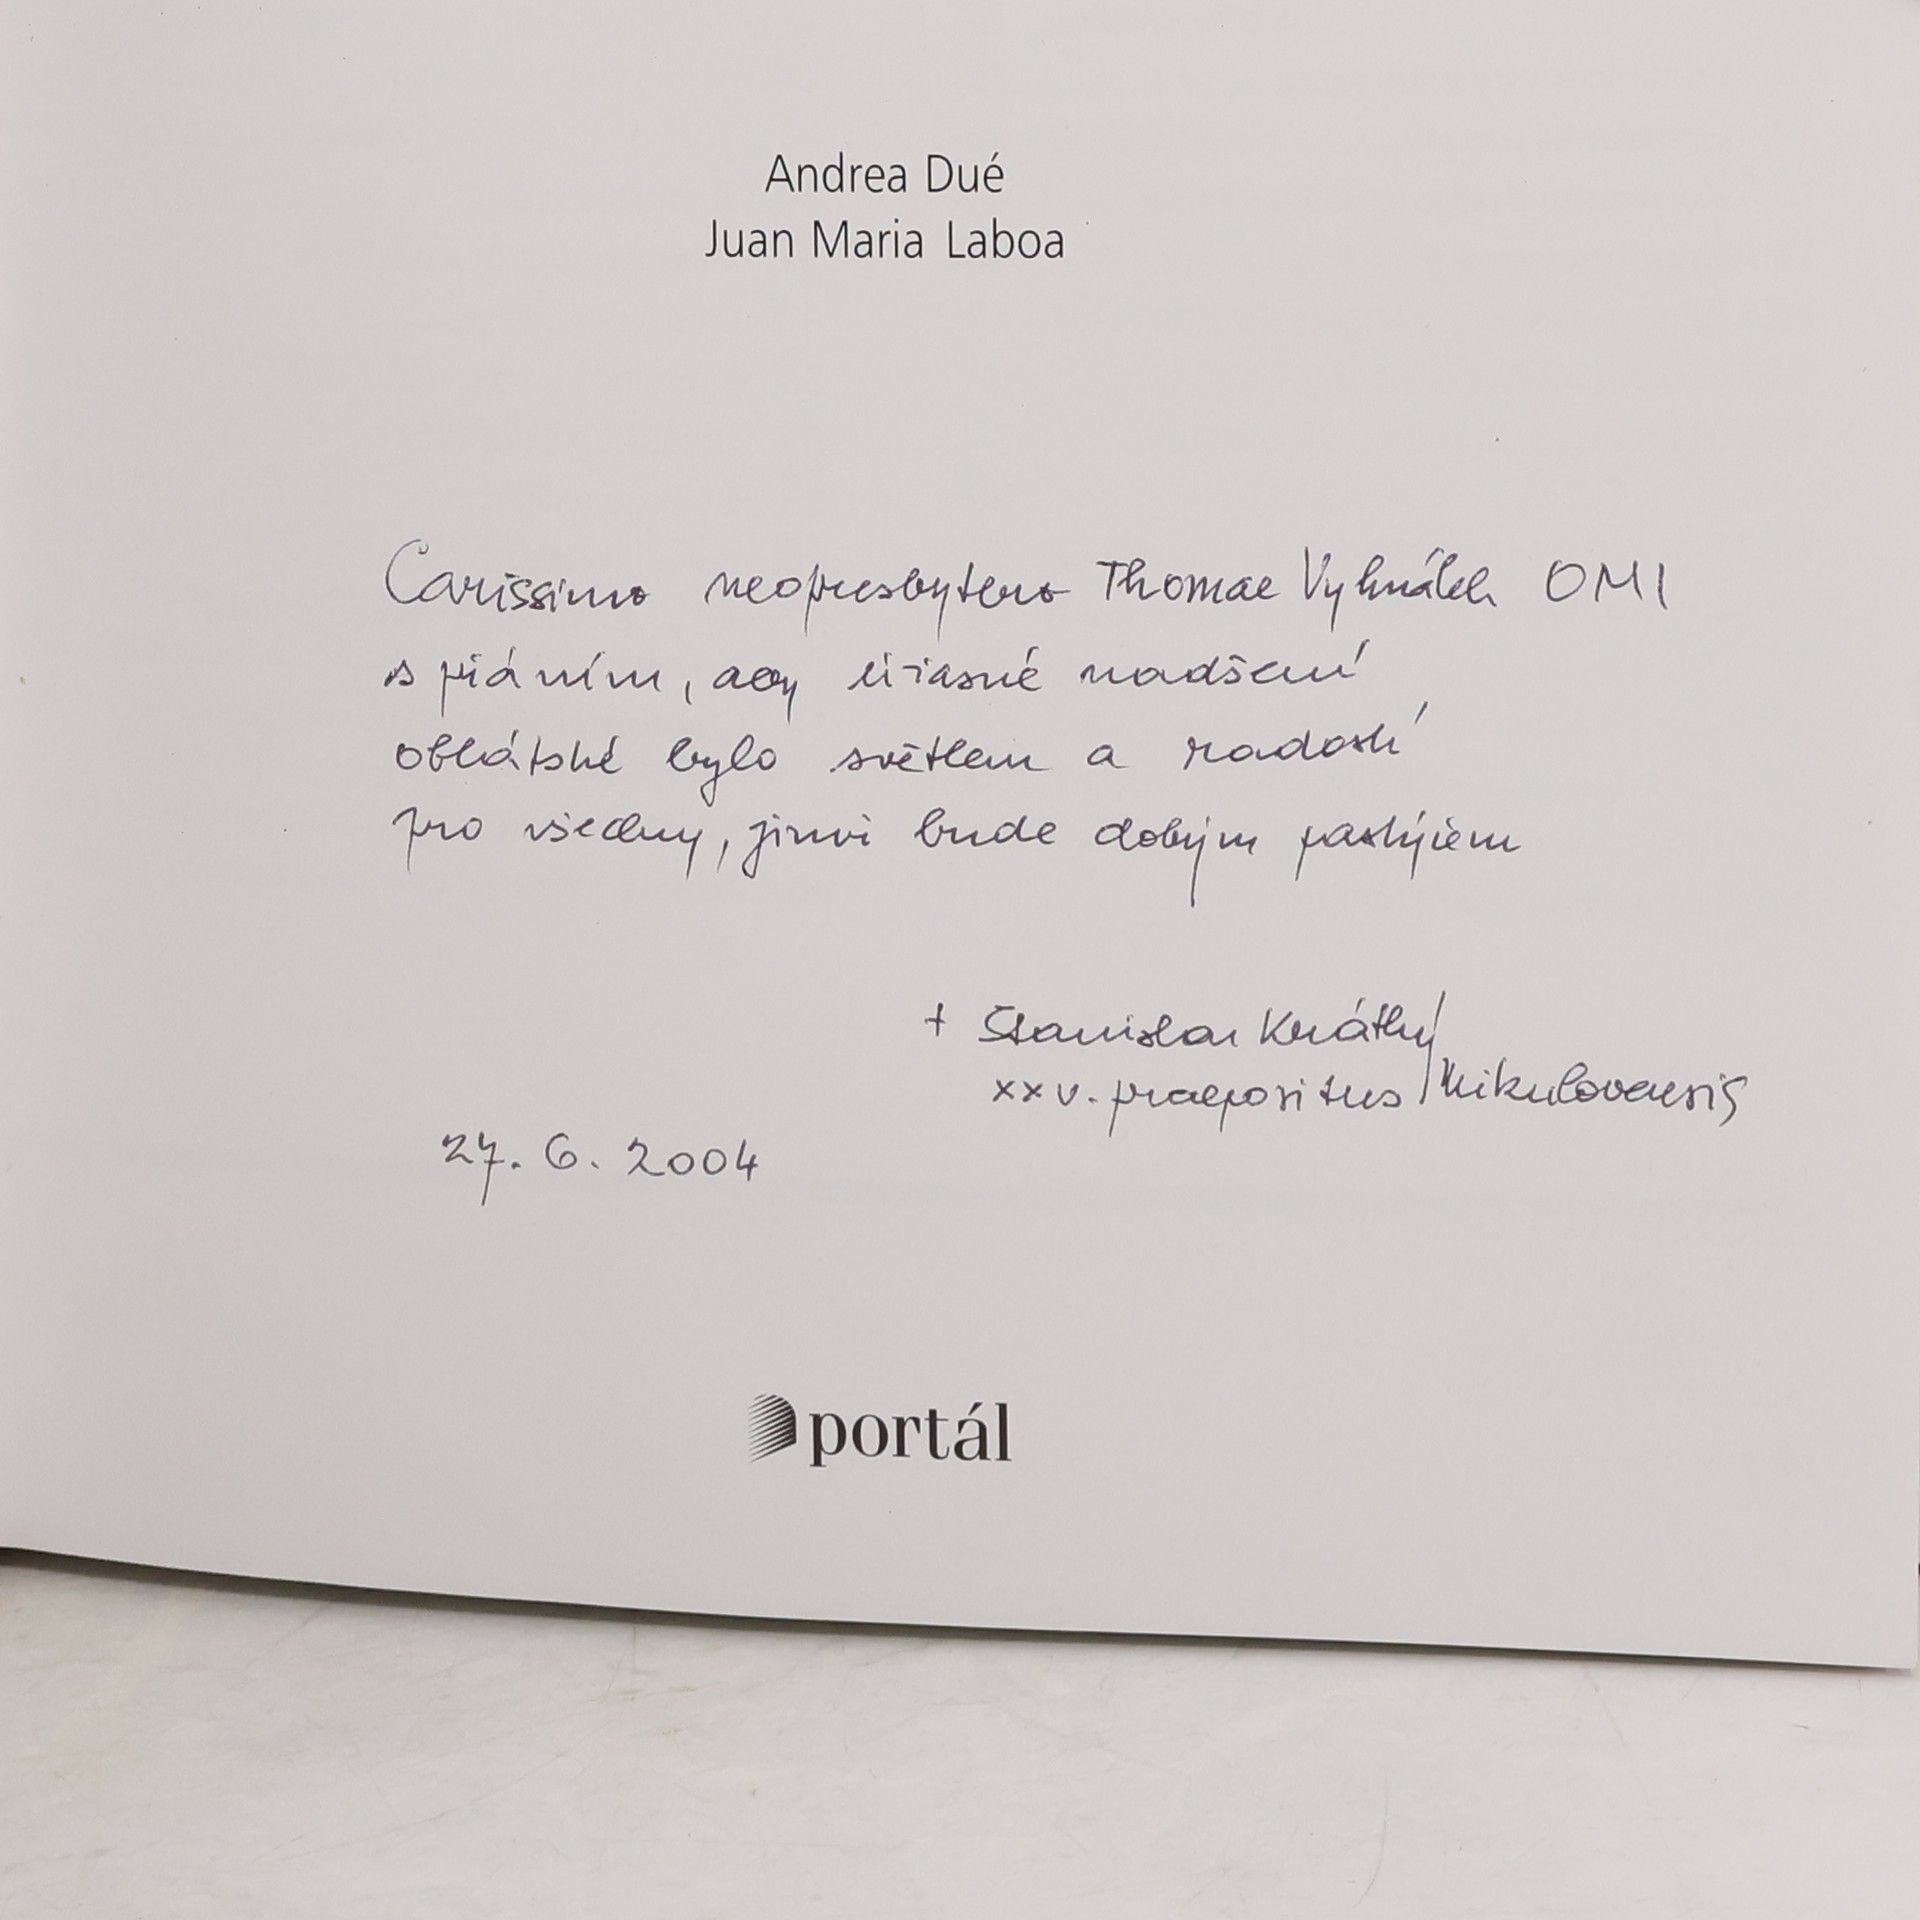 Andrea Dué
Juan Maria Laboa
Carissimo neopresbytero Thomae Vyhnálek OMI
s přáním, aby úžasné nadšení
oblátské bylo světlem a radostí
pro všechny, jimž bude dobrým pastýřem
+ Stanislav Krátký
xxv. praepositus Mikulovensis
27. 6. 2004
portál